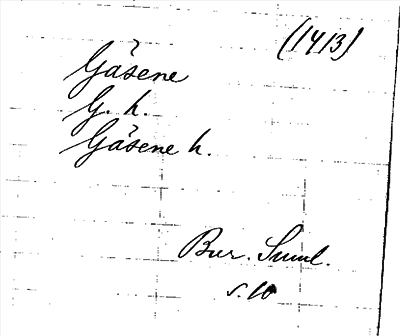 (1413)
Gäsene
G. h.
Gäsene h.
Bur. Saml.
s. 10